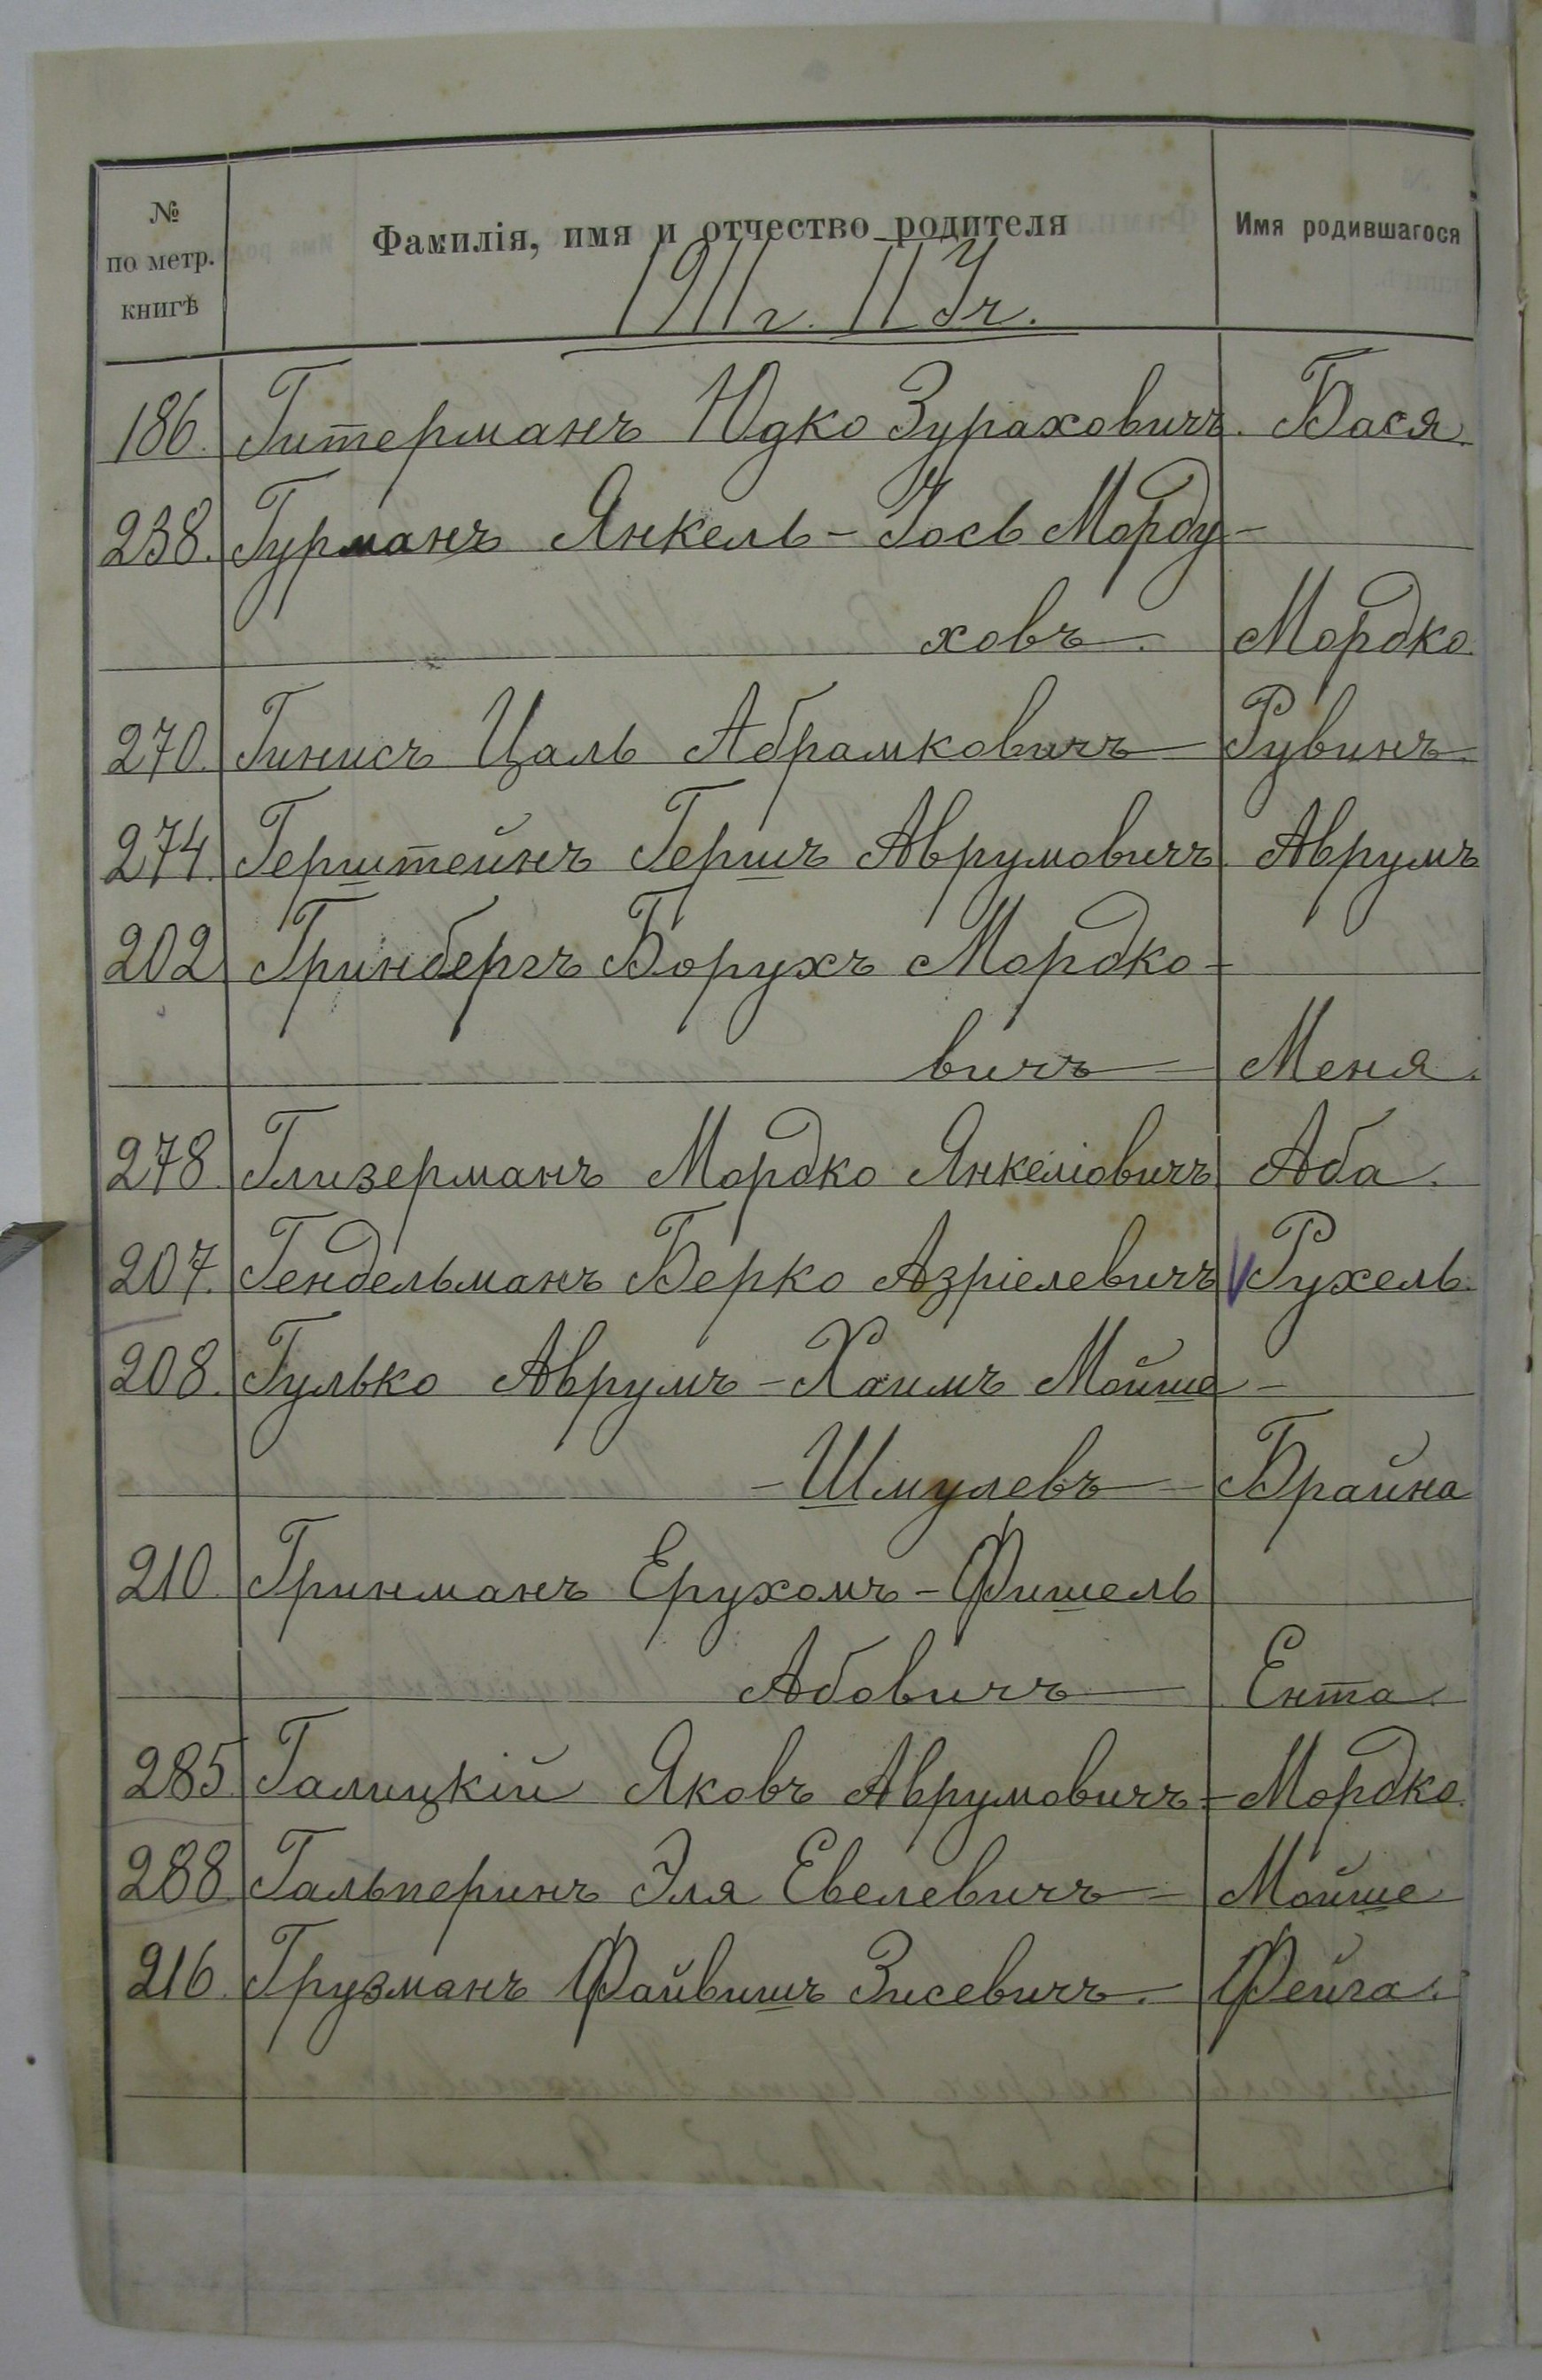 № по метр. книгѣ Фамилія, имя и отчество родителя Имя родившагося
1911 г. II Уч.
186. Гитерманъ Юдко Зураховичъ. Бася.
238. Гурманъ Янкель-Іось Морду-
ховъ. Мордко.
270. Гинисъ Цаль Абрамковичъ Рувинъ.
274. Герштейнъ Гершъ Аврумовичъ. Аврумъ
202 Гринбергъ Борухъ Мордко-
вичъ Меня.
278. Глизерманъ Мордко Янкеліовичъ. Аба.
207. Гендельманъ Берко Азріелевичъ Рухель.
208. Гулько Аврумъ-Хаимъ Мойше-
-Шмулевъ Брайна
210. Гринманъ Ерухомъ-Фишель
Абовичъ Ента.
285. Галицкій Яковъ Аврумовичъ- Мордко.
288. Гальперинъ Эля Евелевичъ- Мойше
216. Грузманъ Файвишъ Зисевичъ. Фейга.